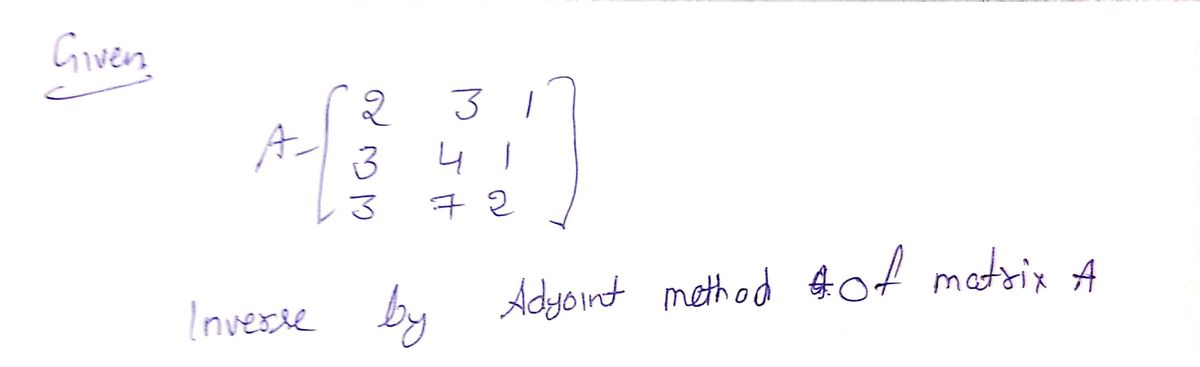 Given
A-[2 3 1
3 4 1
3 7 2]
Inverse by Adyoint method of matrix A